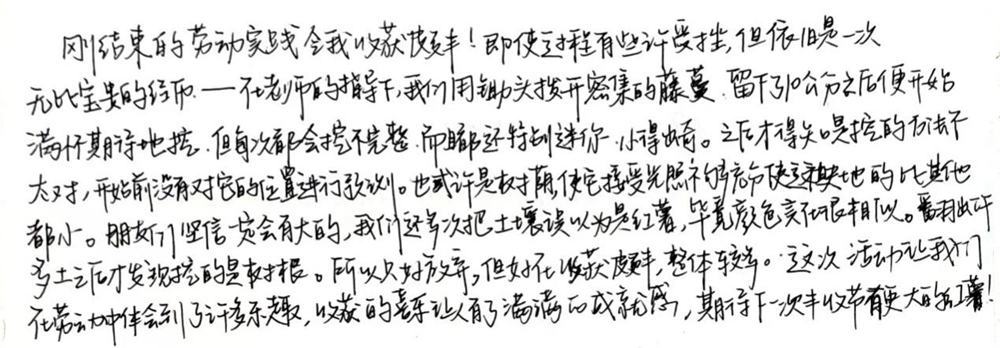 刚结束的劳动实践令我收获颇丰！即使过程有些许受挫，但依旧是一次
无比宝贵的经历——在老师的指导下，我们用锄头拨开密集的藤蔓，留下10公分之后便开始
满怀期待地挖，但每次都会挖不完整，而且都还特别迷你，小得出奇。之后才得知是挖的方法不
太对，开始前没有对它的位置进行预测。也或许是树荫使它接受光照不够充分使这块地的比其他
都小。朋友们坚信一定会有大的，我们还多次把土壤误以为是红薯，毕竟颜色实在很相似。翻出许
多土之后才发现挖的是树根。所以只好放弃，但好在收获颇丰，整体较多。这次活动让我们
在劳动中体会到了许多乐趣，收获的喜乐让人有了满满的成就感，期待下一次丰收节有更大的红薯！